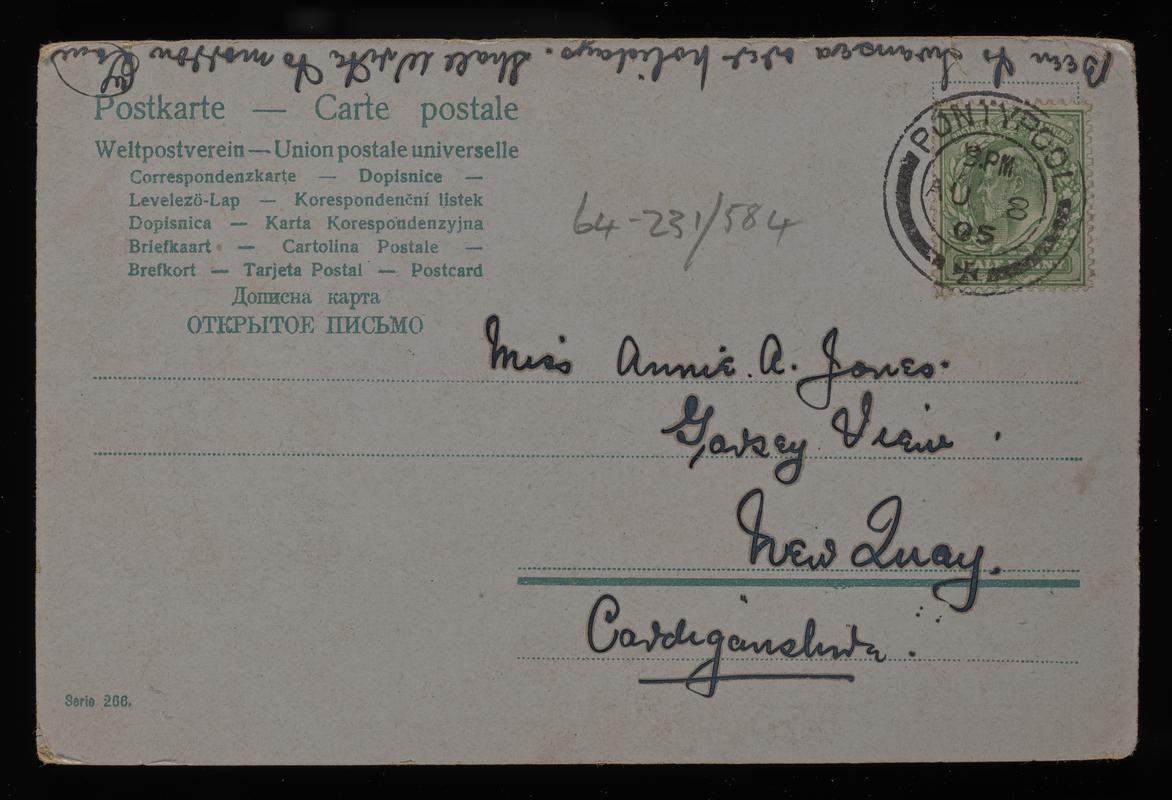 Been to Swansea over holidays. Shall write to morrow
Postkarte — Carte postale
Weltpostverein — Union postale universelle
Correspondenzkarte — Dopisnice —
Levelező-Lap — Korespondenční lístek
Dopisnica — Karta Korespondenzyjna
Briefkaart — Cartolina Postale —
Brefkort — Tarjeta Postal — Postcard
Дописна карта
ОТКРЫТОЕ ПИСЬМО
64-231/584
PONTYPOOL
3.PM
AU 8
05
HALFPENNY
Miss Annie. A. Jones.
View.
New Quay.
Cardiganshire.
Serie 266.